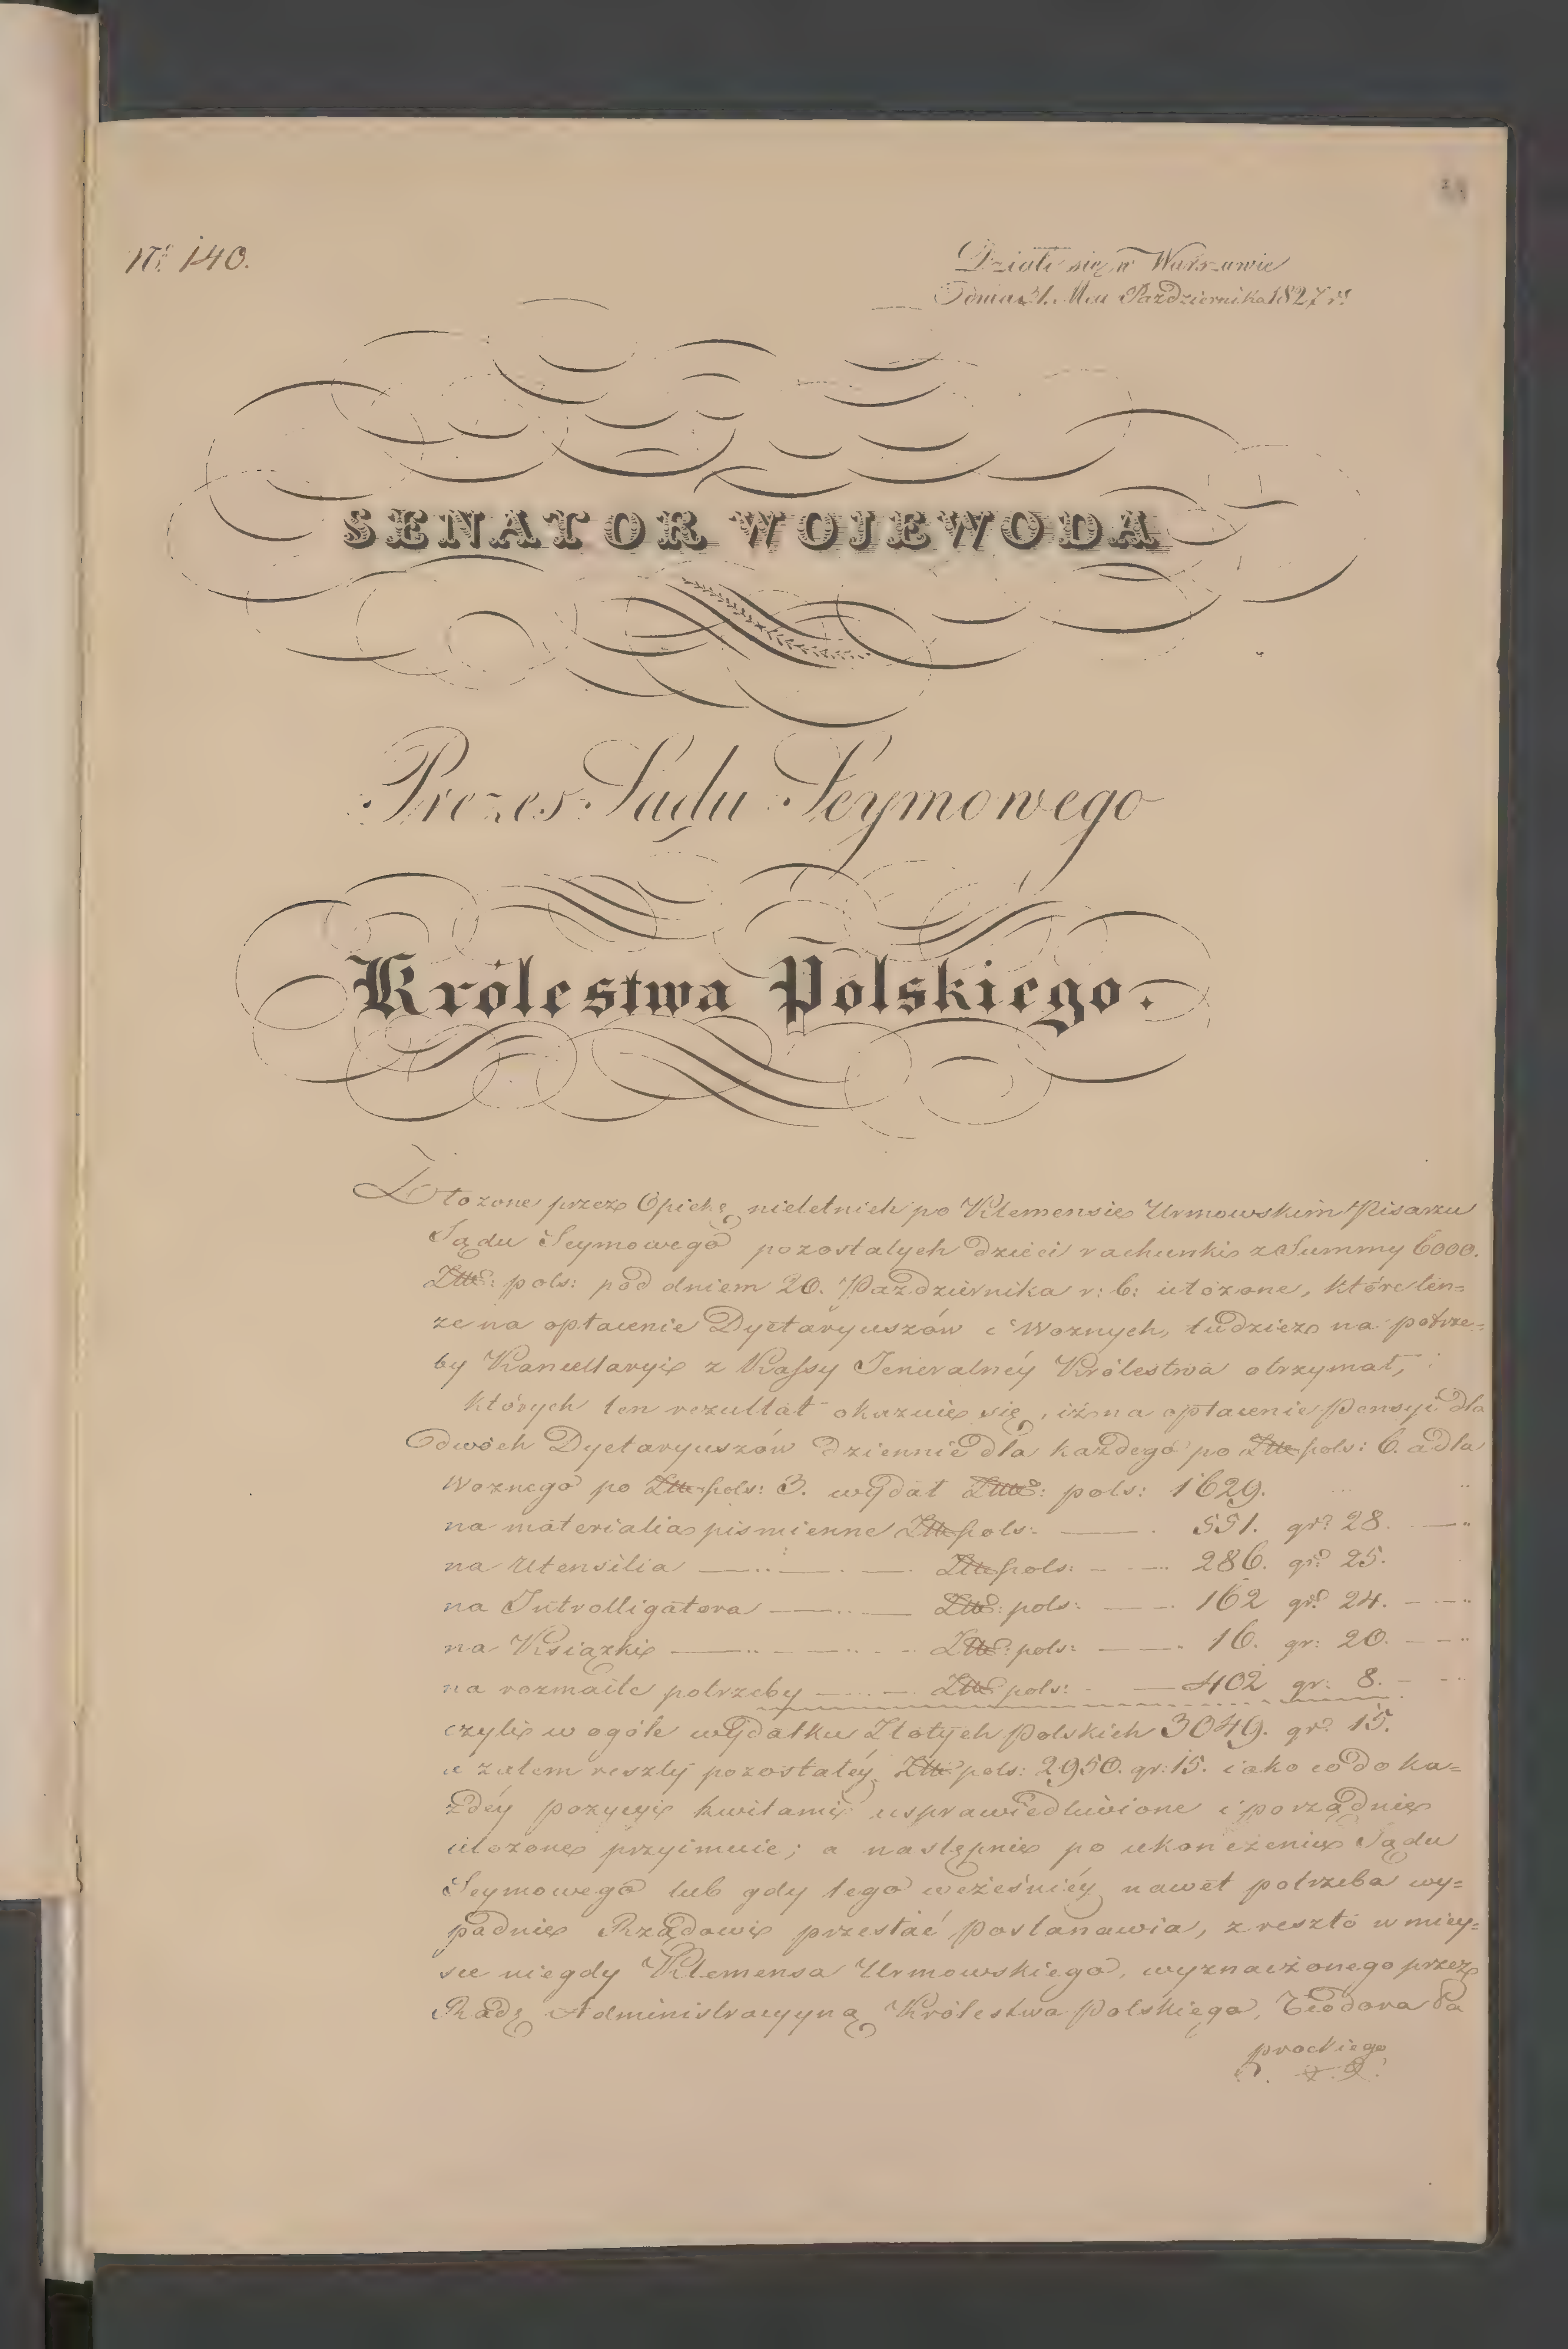 Nº 140.
Działo się w Warszawie
Dnia 31. Mca Października 1827 r:
SENATOR WOJEWODA
Prezes Sądu Seymowego
Królestwa Polskiego.
Złożone przez Opiekę nieletnich po Klemensie Urmowskim Pisarzu
Sądu Seymowego pozostałych dzieci rachunki z Summy 6000.
Złł: pols: pod dniem 20. Października r: b: ułożone, które ten-
że na opłacenie Dyetaryuszów i Woznych, tudzież na potrze-
by Kancellaryi z Kassy Jeneralnéy Królestwa otrzymał,
których ten rezultat okazuie się, iż na opłacenie Pensyi dla
dwóch Dyetaryuszów dziennie dla każdego po Złł: pols: 6. a dla
Woznego po Złł: pols: 3. wydał Złł: pols: 1629.
na materialia piśmienne Złł: pols: — 551. gr: 28.
na Utensilia — Złł: pols: — 286. gr: 25.
na Introlligatora — Złł: pols: — 162 gr: 24.
na Książki — Złł: pols: — 16. gr: 20.
na rozmaite potrzeby — Złł: pols: — 402 gr: 8.
czyli w ogóle wydatku Złotych Polskich 3049. gr: 15.
a zatem reszty pozostałéy Złł: pols: 2950. gr: 15. iako co do ka-
żdéy pozycyi kwitami usprawiedliwione i porządnie
ułożone przyimuie; a następnie po ukończeniu Sądu
Seymowego lub gdy tego wcześniéy nawet potrzeba wy-
padnie Rządowi przesłać postanawia, z resztą w miey-
sce niegdy Klemensa Urmowskiego, wyznaczonego przez
Radę Administracyyną Królestwa Polskiego, Teodora Pa
prockiego